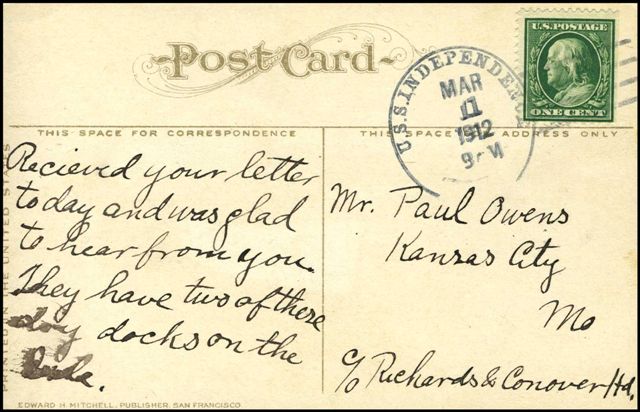 Post Card
U.S. POSTAGE
ONE CENT
U.S.S. INDEPENDENCE
MAR
11
1912
9 PM
THIS SPACE FOR CORRESPONDENCE
THIS SPACE ADDRESS ONLY
Recieved your letter
today and was glad
to hear from you.
They have two of these
dry docks on the
Mr. Paul Owens
Kansas City
Mo
c/o Richards & Conover Hd.
PRINTED IN THE UNITED STATES
EDWARD H. MITCHELL, PUBLISHER, SAN FRANCISCO.